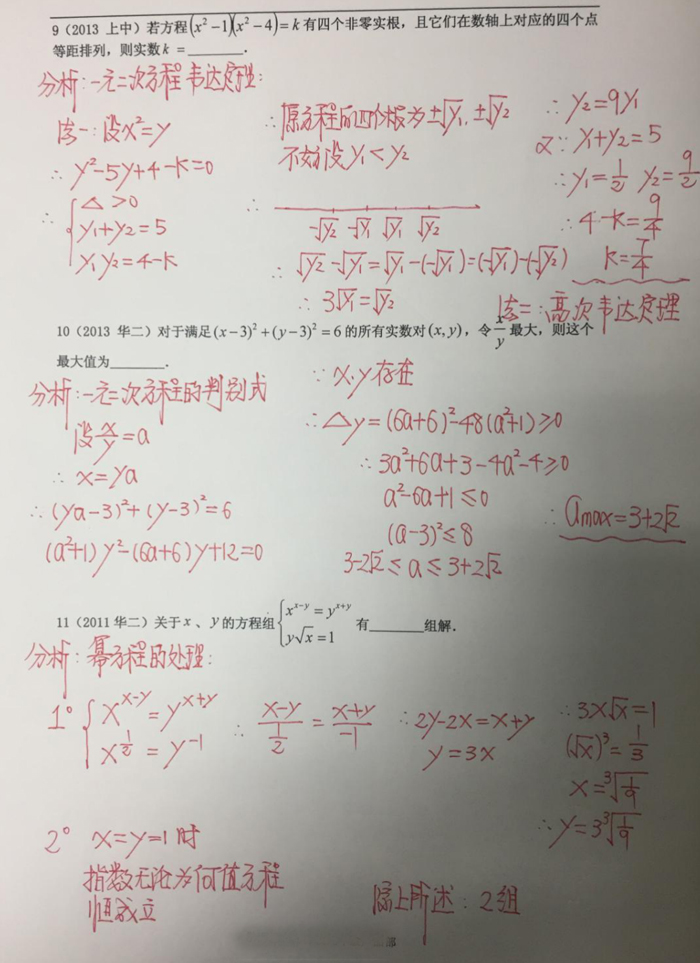 9（2013 上中）若方程(x²－1)(x²－4)=k有四个非零实根，且它们在数轴上对应的四个点
等距排列，则实数k=______.
分析:一元二次方程韦达定理:
法一:设x²=y
∴ y²-5y+4-k=0
∴ { △>0
y₁+y₂=5
y₁y₂=4-k
∴ 原方程的四个根为±√y₁, ±√y₂
不妨设y₁<y₂
∴
-√y₂ -√y₁ √y₁ √y₂
∴ √y₂-√y₁=√y₁-(-√y₁)=(-√y₁)-(-√y₂)
∴ 3√y₁=√y₂
∴ y₂=9y₁
又∵ y₁+y₂=5
∴ y₁=1/2 y₂=9/2
∴ 4-k=9/4
k=7/4
法二:高次韦达定理
10（2013 华二）对于满足(x－3)²+(y－3)²=6的所有实数对(x,y)，令x/y最大，则这个
最大值为______.
分析:一元二次方程的判别式
设x/y=a
∴ x=ya
∴ (ya-3)²+(y-3)²=6
(a²+1)y²-(6a+6)y+12=0
∵ x,y存在
∴ △y=(6a+6)²-48(a²+1)≥0
∴ 3a²+6a+3-4a²-4≥0
a²-6a+1≤0
(a-3)²≤8
3-2√2≤a≤3+2√2
∴ amax=3+2√2
11（2011 华二）关于x、y的方程组{ x^(x-y)=y^(x+y)
y√x=1 有______组解.
分析:幂方程的处理:
1° { x^(x-y)=y^(x+y)
x^(1/2)=y^(-1)
∴ (x-y)/(1/2)=(x+y)/(-1)
∴ 2y-2x=x+y
y=3x
∴ 3x√x=1
(√x)³=1/3
x=³√(1/9)
∴ y=3³√(1/9)
2° x=y=1时
指数无论为何值方程
恒成立
综上所述:2组
部